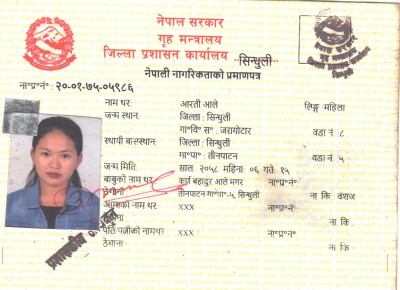 नेपाल सरकार
गृह मन्त्रालय
जिल्ला प्रशासन कार्यालय ..सिन्धुली
नेपाली नागरिकताको प्रमाणपत्र
ना॰प्र॰नं॰ : २०-०१-७५-०५९८६
नाम थर: आरती आले लिङ्ग: महिला
जन्म स्थान: जिल्ला : सिन्धुली
गा॰वि॰ स॰ : जरायोटार वडा नं : ८
स्थायी बासस्थान: जिल्ला : सिन्धुली
गा॰पा॰ : तीनपाटन वडा नं : ५
जन्म मिति: साल: २०५८ महिना: ०६ गते: १५
बाबुको नाम थर: कुर्ण बहादुर आले मगर ना॰प्र॰नं॰
ठेगाना: तीनपाटन गा॰पा॰-५, सिन्धुली ना कि: वंशज
आमाको नाम थर: xxx ना॰प्र॰नं॰:
ठेगाना: ना कि :
पति/पत्नीको नामथर: xxx ना॰प्र॰नं॰:
ठेगाना: ना कि: